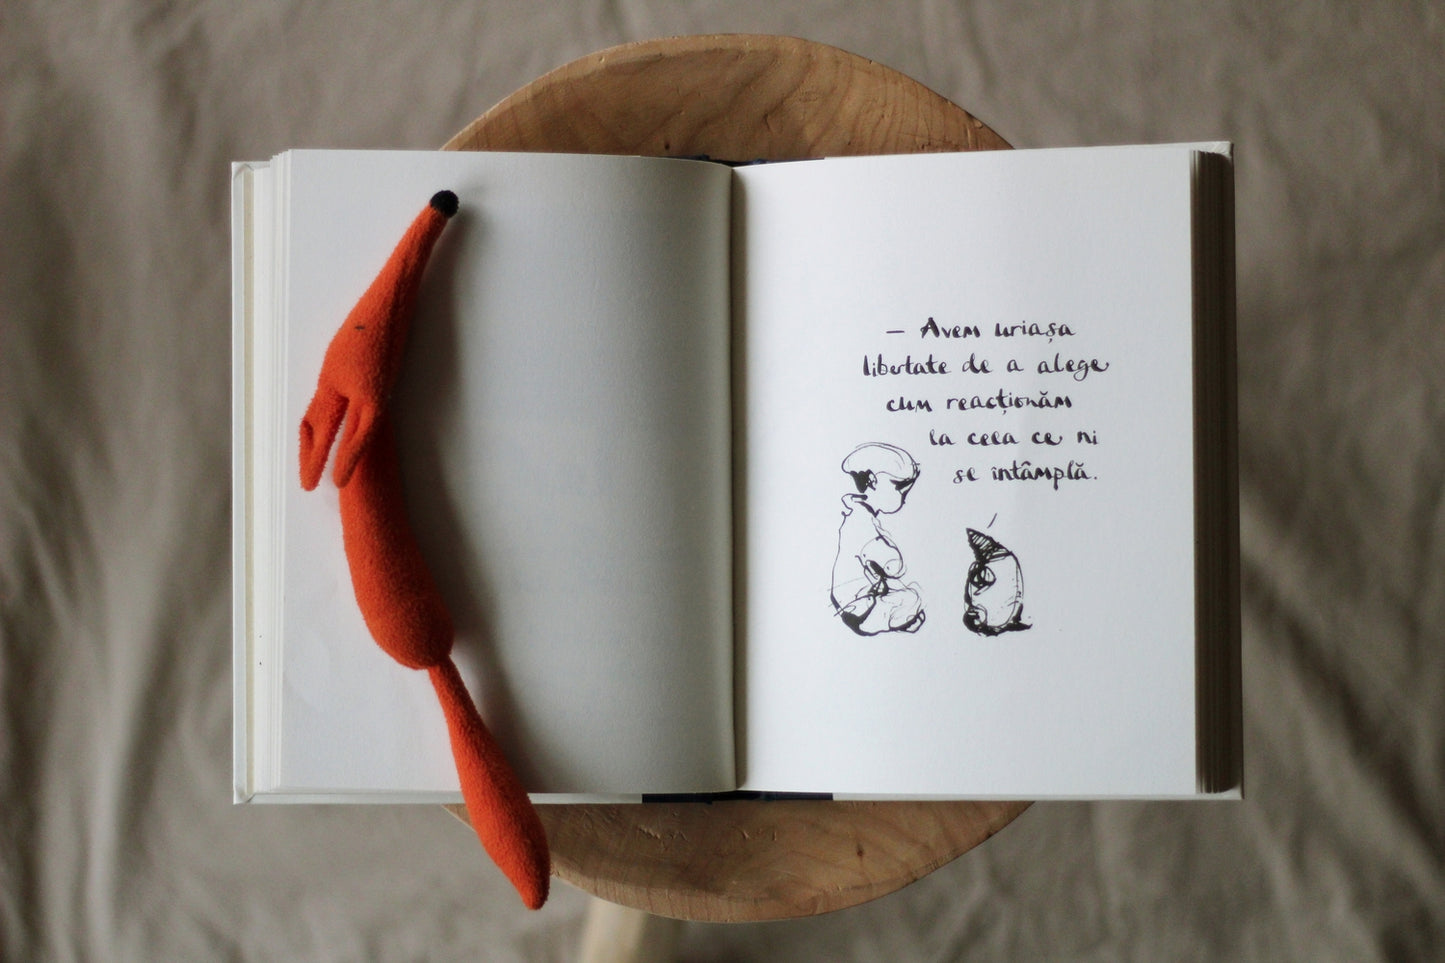 — Avem uriașa
libertate de a alege
cum reacționăm
la ceea ce ni
se întâmplă.